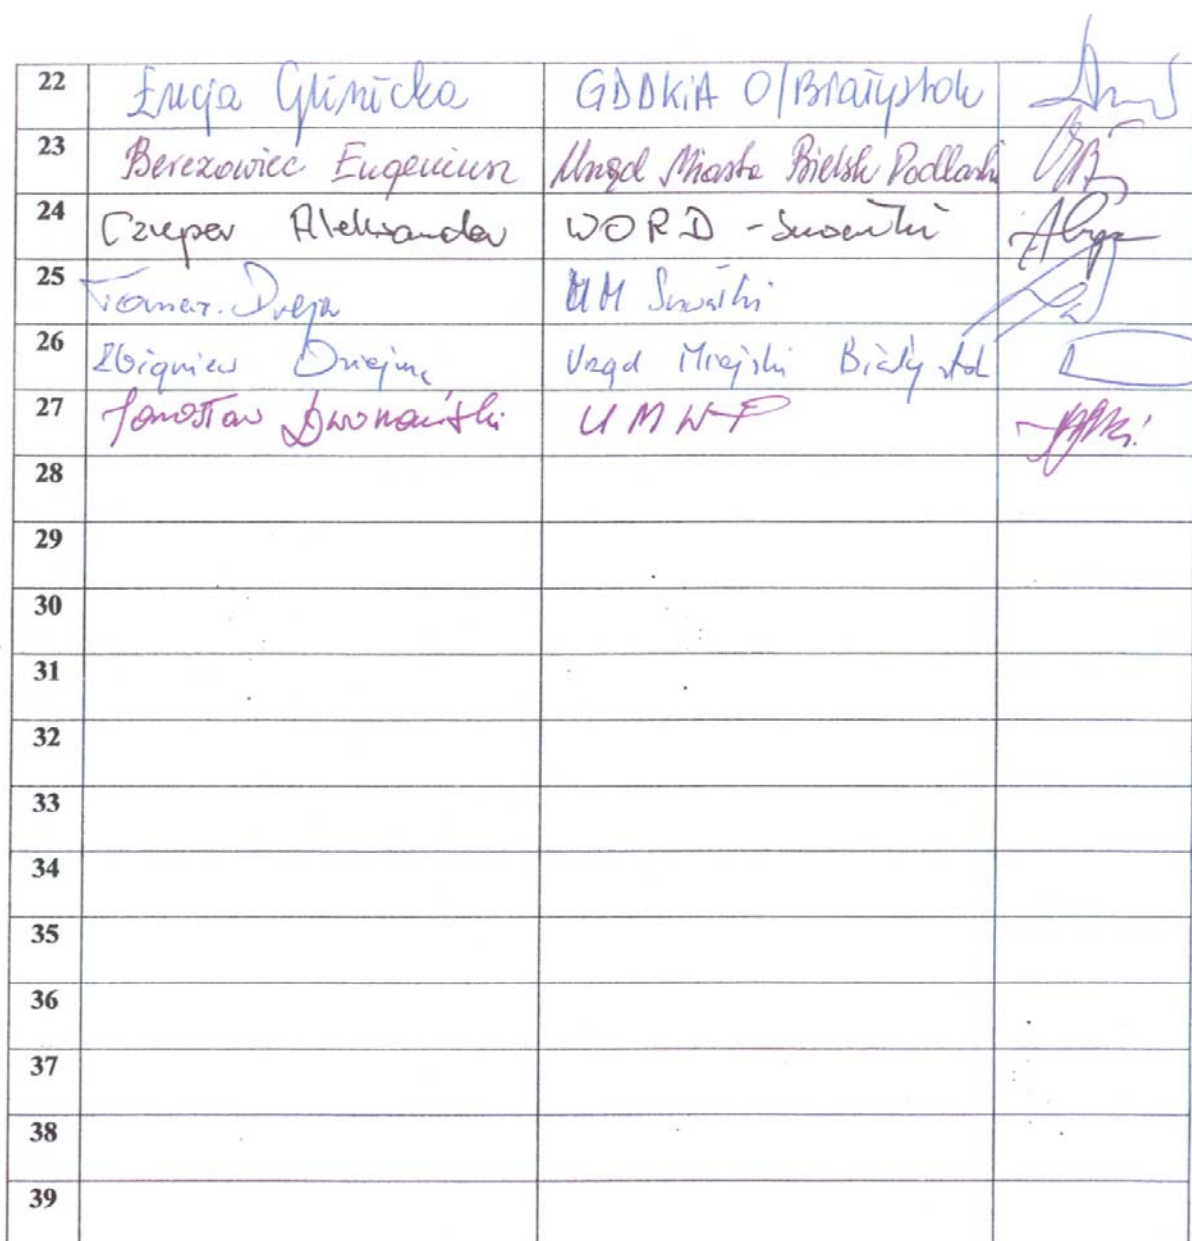 22 Łucja Glinicka GDDKiA O/Białystok
23 Berezowiec Eugeniusz Urząd Miasta Bielsk Podlaski
24 Aleksander WORD - Suwałki
25 Tomasz UM Suwałki
26 Zbigniew Urząd Miejski Białystok
27 Jarosław Dworzański UMWP
28
29
30
31
32
33
34
35
36
37
38
39